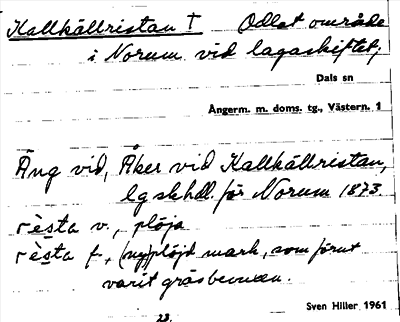 Kallkällristan † Odlat område
i Norum vid lagaskiftet;
Dals sn
Ångerm. m. doms. tg., Västern. 1
Äng vid, Åker vid Kallkällristan,
lgskhdl. för Norum 1873.
rèsta v., plöja
rèsta f., (ny)plöjd mark, som förut
varit gräsbevuxen.
Sven Hiller 1961
23.